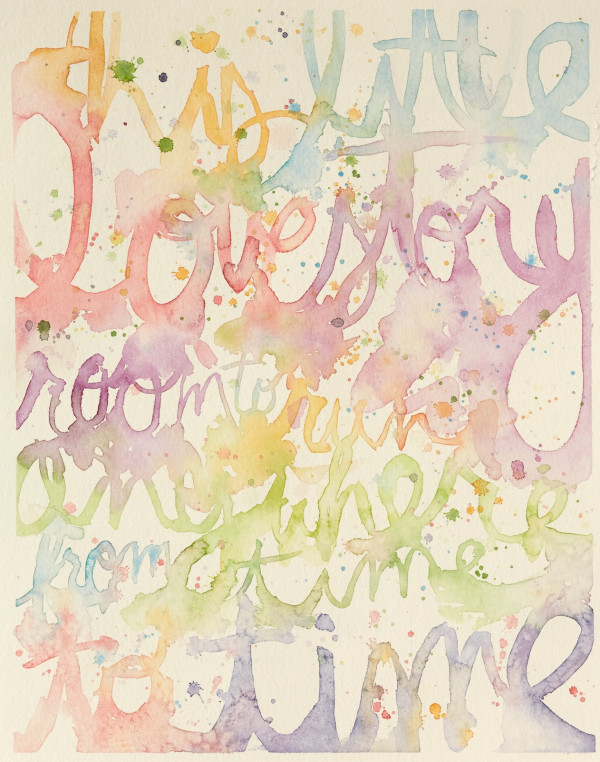 this little
love story
room to run
and there
from time
to time